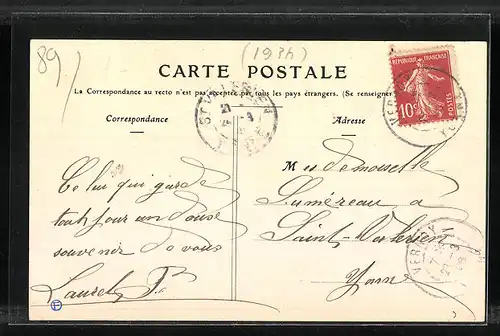 89
(1934)
CARTE POSTALE
La Correspondance au recto n'est pas acceptée par tous les pays étrangers. (Se renseigner
Correspondance
Adresse
RÉPUBLIQUE FRANÇAISE
10c
POSTES
Celui qui garde
toutjour un douse
souvenir de vous
Laurel P.
Mademoiselle
Luméreau à
Saint-Valérien
Yonne
ST VALERIEN
YONNE